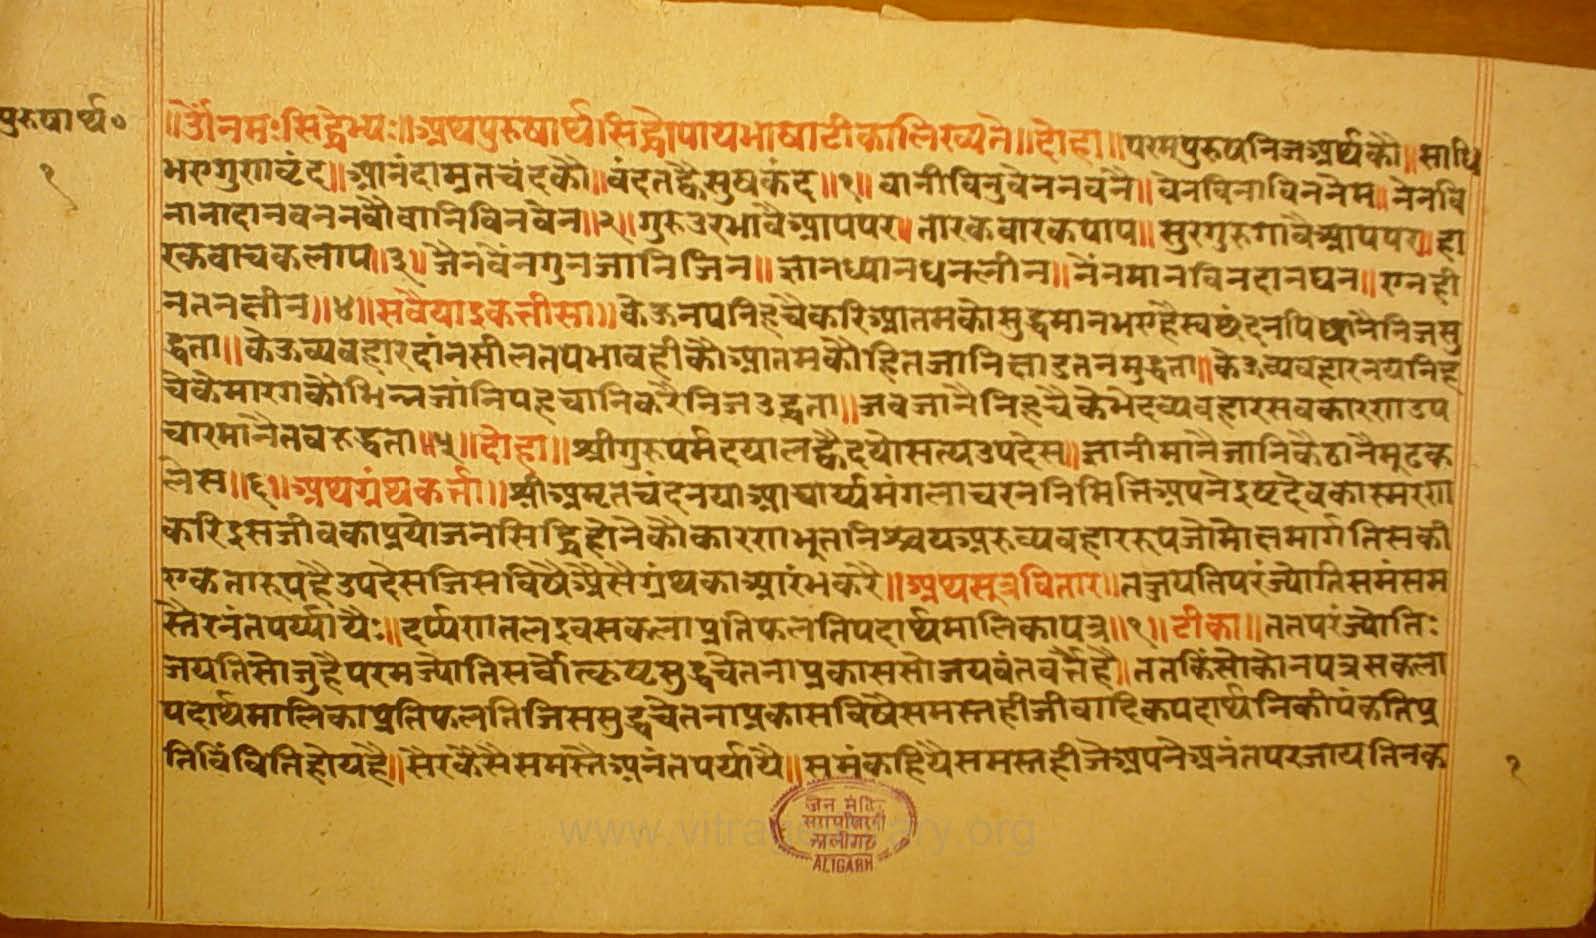 पुरुषार्थ०
१
॥ॐनमःसिद्धेभ्यः॥अथपुरुषार्थसिद्धोपायभाषाटीकालिख्यते॥दोहा॥परमपुरुषनिजअर्थकौ॥साधि
भएगुणवृंद॥आनंदामृतचंदकौ॥वंदतह्वैसुषकंद॥१॥वानीविनुवेननवनै॥वेनविनाविननेम॥नेनवि
नानादानवननवौवानिविनवेन॥२॥गुरुउरभावैआपपर॥तारकवारकपाप॥सुरगुरुगावैआपपर॥हा
रकवाचकलाप॥३॥जैनवेंनगुनजानिजिन॥ज्ञानध्यानधनलीन॥नेंनमानविनदानघन॥एनही
नतनछीन॥४॥सवैयाइकत्तीसा॥केऊनयनिहचैकरिआतमकोसुद्धमानभएहैस्वछंदनपिछानैनिजसु
द्धता॥केऊव्यवहारदांनसीलतपभावहीकौआतमकौहितजानिछाडतनमुद्धता॥केऊव्यवहारनयनिह
चेकेमारगकौभिन्नजांनिपहचानिकरैनिजउद्धता॥जवजानैनिहचैकेभेदव्यवहारसवकारणउप
चारमानैतवरुद्धता॥५॥दोहा॥श्रीगुरुपर्मदयालह्वैदयोसत्यउपदेस॥ज्ञानीमानैजानिकैठानैमूढक
लेस॥६॥अथग्रंथकर्त्ता॥श्रीअमृतचंदनयाआचार्य्यमंगलाचरननिमित्तिअपनेइष्टदेवकास्मरण
करिइसजीवकाप्रयोजनसिद्धिहोनेकौकारणभूतनिश्चयअरुव्यवहाररूपजोमोक्षमार्गतिसकी
एकतारूपहैउपदेसजिसविषैअैसैग्रंथकाआरंभकरै॥अथसूत्रवितार॥तज्जयतिपरंज्योतिसमंसम
स्तैरनंतपर्य्यायैः॥दर्प्पणतलइवसकलाप्रतिफलतिपदार्थमालिकायत्र॥१॥टीका॥ततपरंज्योतिः
जेयतिसोजुहैपरमज्योतिसर्वोत्कृष्टसुद्धचेतनाप्रकाससोजयवंतवर्त्तैहै॥ततकिंसोकोनयत्रसकला
पदार्थमालिकाप्रतिफलतिजिससुद्धचेतनाप्रकासविषैसमस्तहीजीवादिकपदार्थनिकीपंकतिप्र
तिविंवितिहोयहै॥सैरकैसैसमस्तैअनंतपर्यायै॥समंकहियैसमस्तहीजेअपनेअनंतपरजायतिनक
१
जैन मंदिर
अलीगढ
ALIGARH